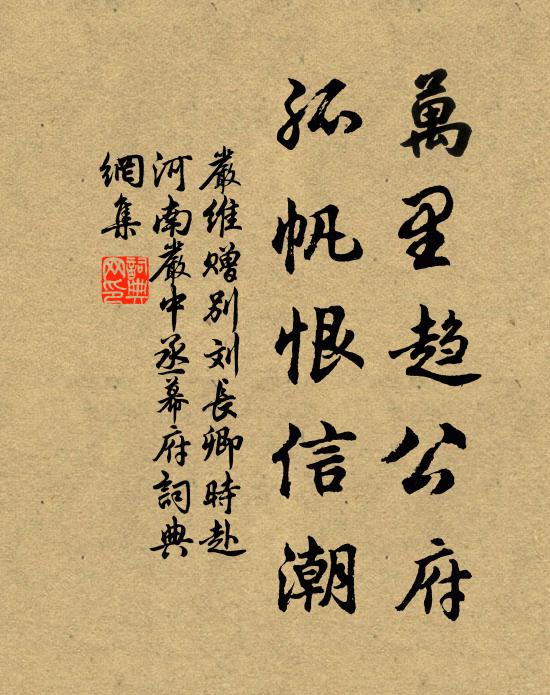 萬里趨公府
孤帆恨信潮
嚴維赠别刘長卿時赴
河南嚴中丞幕府詞典
網集
詞典
网印